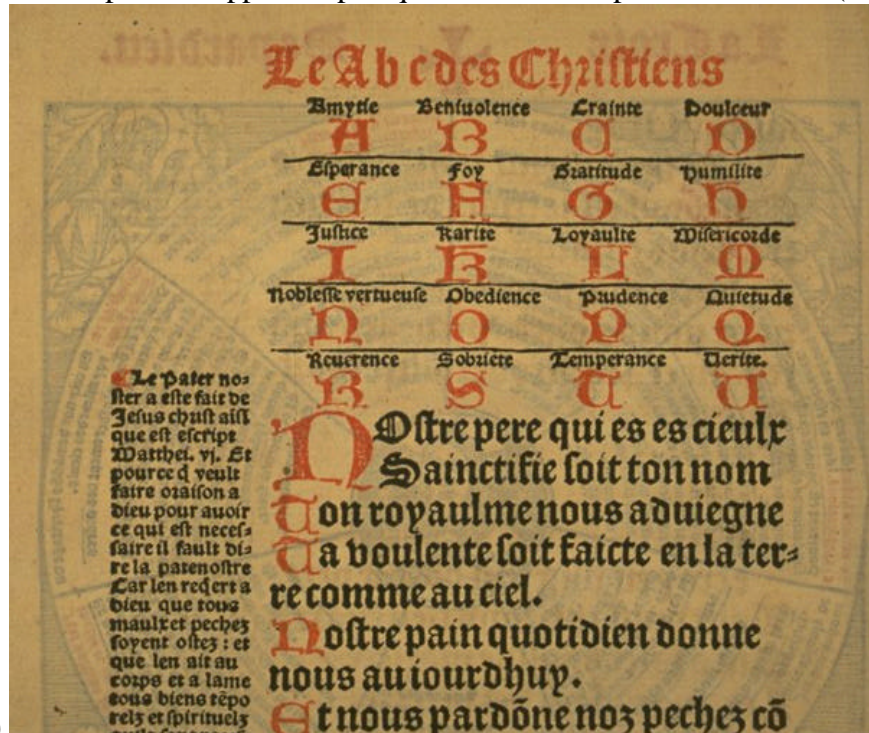 Le A b c des Christiens
Amytie Beniuolence Crainte Doulceur
A B C D
Esperance Foy Gratitude Humilite
E F G H
Justice Karite Loyaulte Misericorde
I K L M
Noblesse vertueuse Obedience Prudence Quietude
N O P Q
Reuerence Sobriete Temperance Uerite.
R S T U
Le Pater no=
ster a este fait de
Jesus christ aisi
que est escript
Matthei. vj. Et
pource q veult
faire oraison a
dieu pour auoir
ce qui est neces=
saire il fault di=
re la patenostre
Car len reqert a
dieu que tous
maulx et pechez
soyent ostez : et
que len ait au
corps et a lame
tous biens tẽpo
relz et spirituelz
NOstre pere qui es es cieulx
Sainctifie soit ton nom
Ton royaulme nous aduiegne
Ta voulente soit faicte en la ter=
re comme au ciel.
Nostre pain quotidien donne
nous au iourdhuy.
Et nous pardõne noz pechez cõ